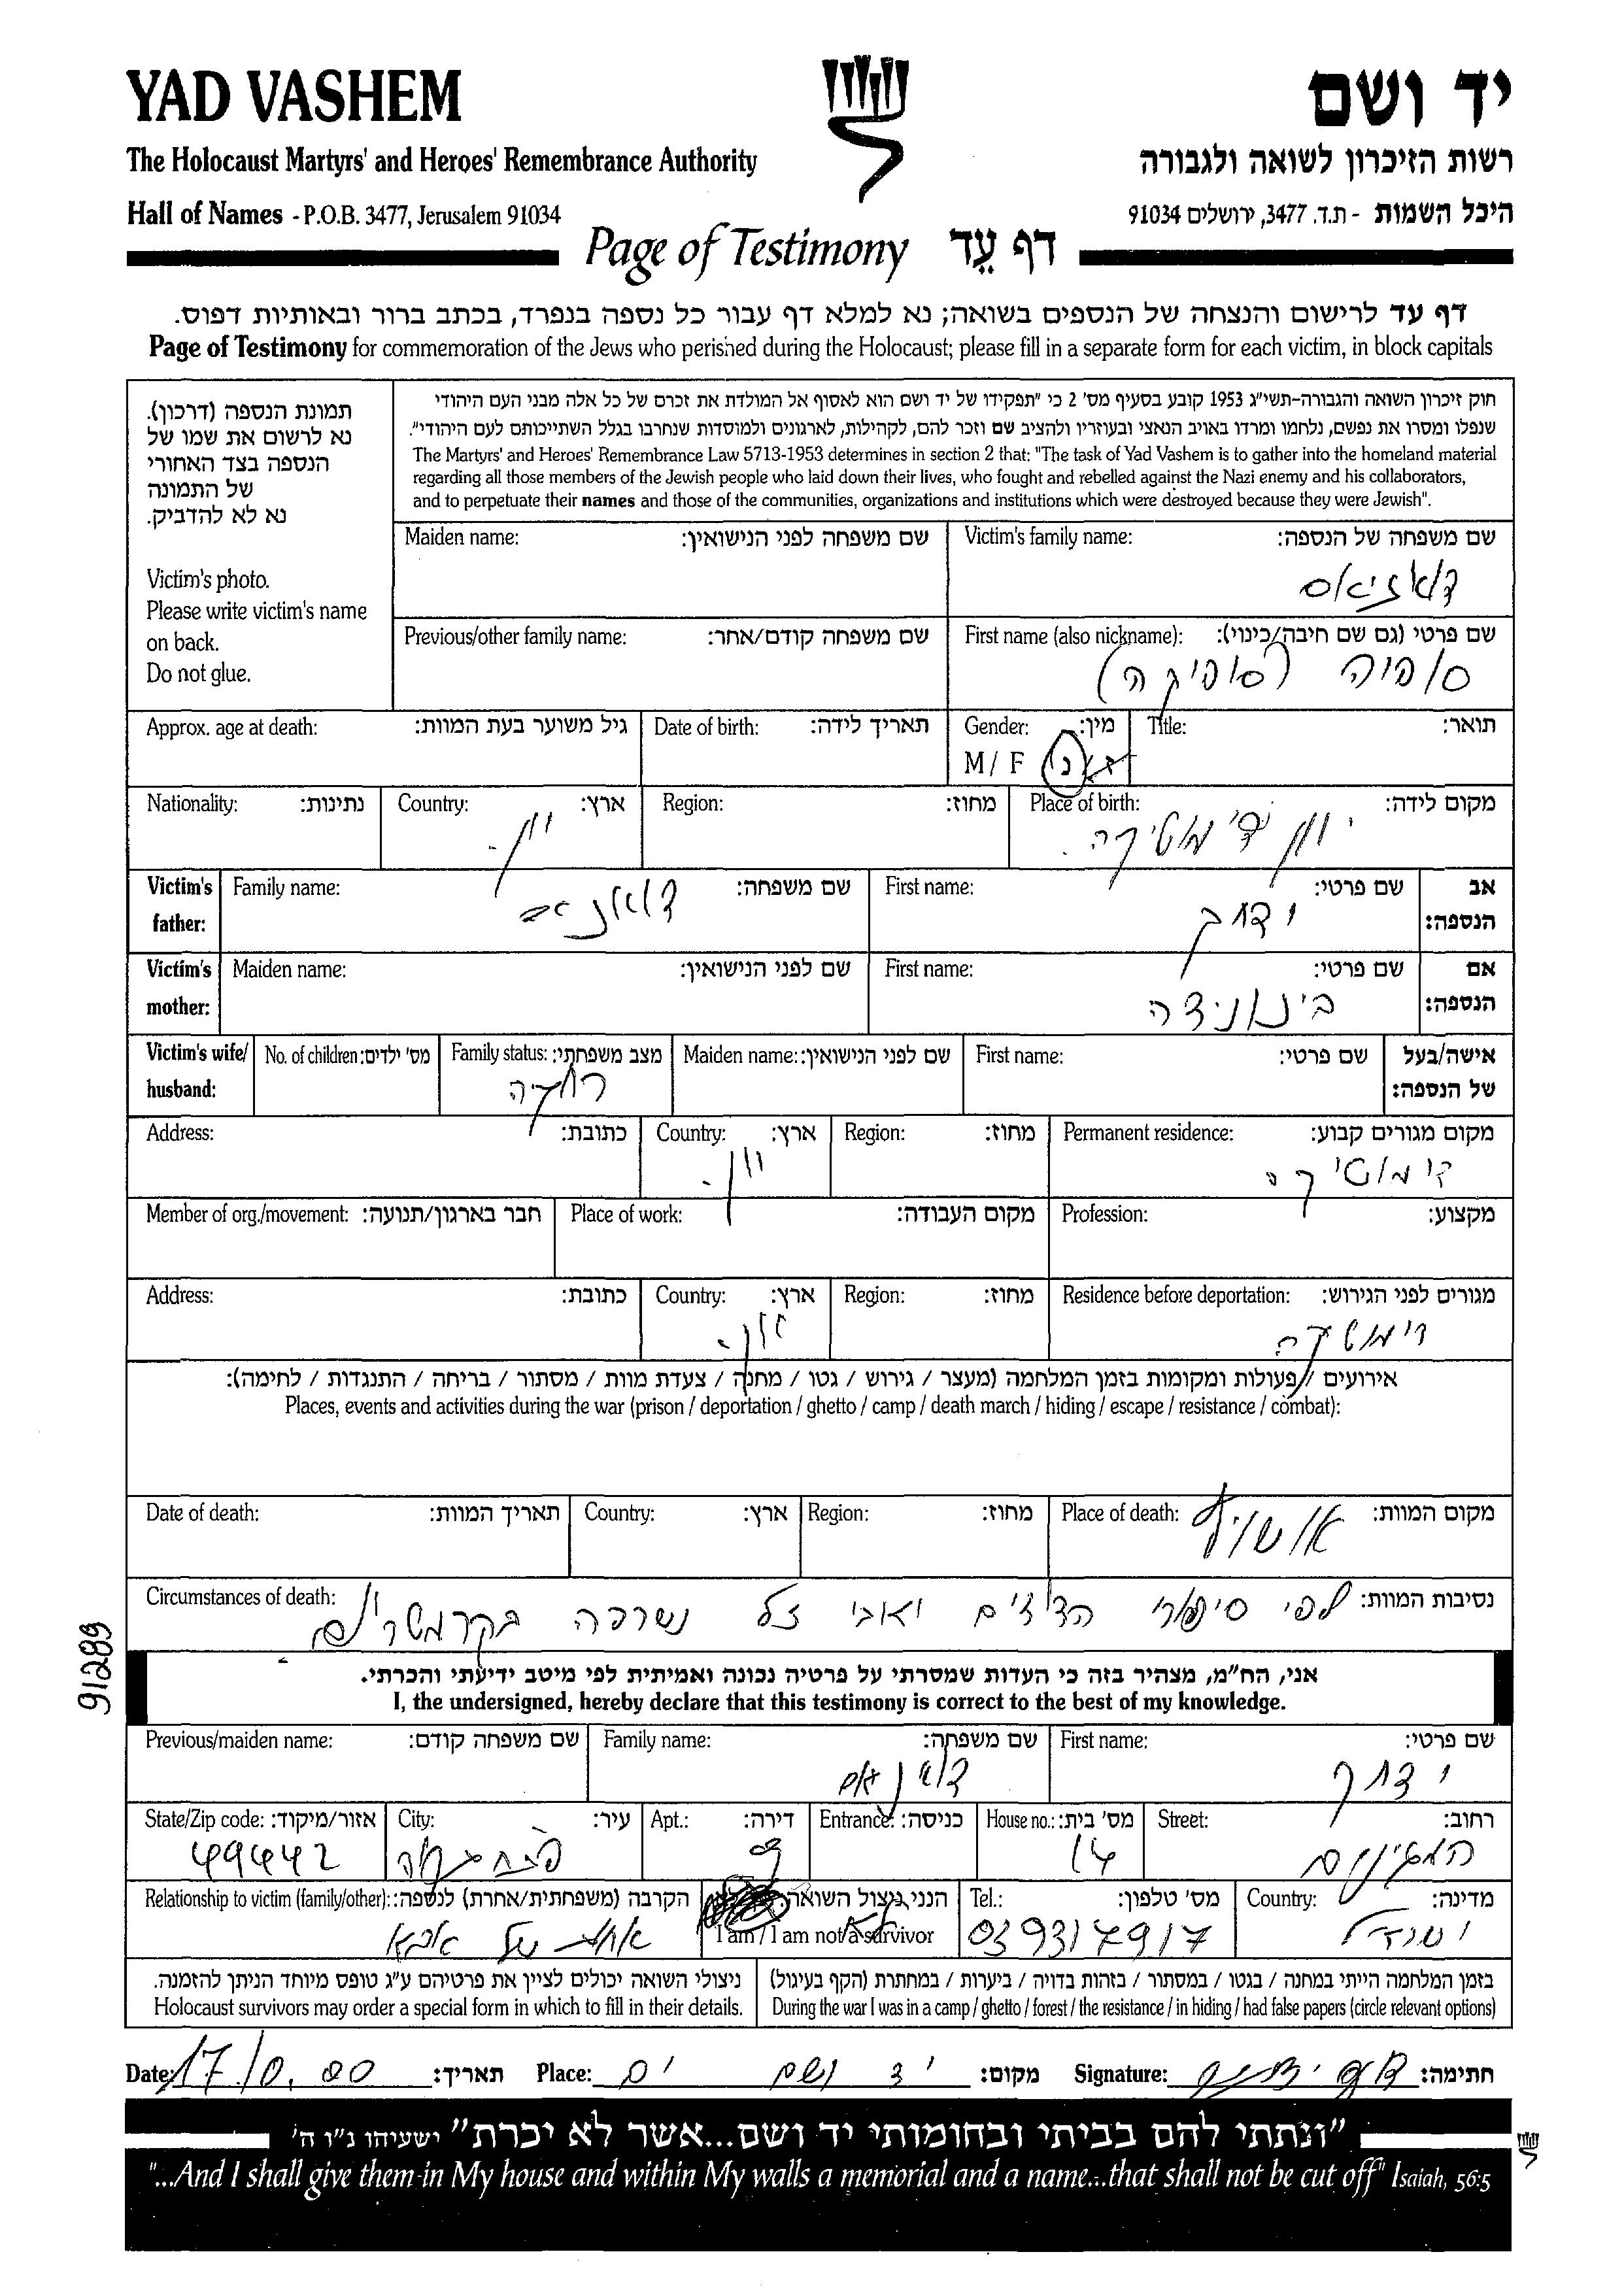 YAD VASHEM
יד ושם
The Holocaust Martyrs' and Heroes' Remembrance Authority
רשות הזיכרון לשואה ולגבורה
Hall of Names - P.O.B. 3477, Jerusalem 91034
היכל השמות - ת.ד. 3477, ירושלים 91034
Page of Testimony דף עֵד
דף עד לרישום והנצחה של הנספים בשואה; נא למלא דף עבור כל נספה בנפרד, בכתב ברור ובאותיות דפוס.
Page of Testimony for commemoration of the Jews who perished during the Holocaust; please fill in a separate form for each victim, in block capitals
תמונת הנספה (דרכון).
נא לרשום את שמו של
הנספה בצד האחורי
של התמונה
נא לא להדביק.
Victim's photo.
Please write victim's name
on back.
Do not glue.
חוק זיכרון השואה והגבורה-תשי"ג 1953 קובע בסעיף מס' 2 כי "תפקידו של יד ושם הוא לאסוף אל המולדת את זכרם של כל אלה מבני העם היהודי
שנפלו ומסרו את נפשם, נלחמו ומרדו באויב הנאצי ובעוזריו ולהציב שם וזכר להם, לקהילות, לארגונים ולמוסדות שנחרבו בגלל השתייכותם לעם היהודי".
The Martyrs' and Heroes' Remembrance Law 5713-1953 determines in section 2 that: "The task of Yad Vashem is to gather into the homeland material
regarding all those members of the Jewish people who laid down their lives, who fought and rebelled against the Nazi enemy and his collaborators,
and to perpetuate their names and those of the communities, organizations and institutions which were destroyed because they were Jewish".
Maiden name: שם משפחה לפני הנישואין:
Victim's family name: שם משפחה של הנספה:
Previous/other family name: שם משפחה קודם/אחר:
First name (also nickname): שם פרטי (גם שם חיבה/כינוי):
סופיה (סופיקה)
Approx. age at death: גיל משוער בעת המוות:
Date of birth: תאריך לידה:
Gender: מין:
M / F ז/נ
Title: תואר:
Nationality: נתינות:
Country: ארץ:
יוון.
Region: מחוז:
Place of birth: מקום לידה:
יוון דימוטיקה.
Victim's father: אב הנספה:
Family name: שם משפחה:
First name: שם פרטי:
Victim's mother: אם הנספה:
Maiden name: שם לפני הנישואין:
First name: שם פרטי:
Victim's wife/husband: אישה/בעל של הנספה:
No. of children: מס' ילדים:
Family status: מצב משפחתי:
רווקה
Maiden name: שם לפני הנישואין:
First name: שם פרטי:
Address: כתובת:
Country: ארץ:
יוון.
Region: מחוז:
Permanent residence: מקום מגורים קבוע:
דימוטיקה
Member of org./movement: חבר בארגון/תנועה:
Place of work: מקום העבודה:
Profession: מקצוע:
Address: כתובת:
Country: ארץ:
יוון.
Region: מחוז:
Residence before deportation: מגורים לפני הגירוש:
דימוטיקה
אירועים / פעולות ומקומות בזמן המלחמה (מעצר / גירוש / גטו / מחנה / צעדת מוות / מסתור / בריחה / התנגדות / לחימה):
Places, events and activities during the war (prison / deportation / ghetto / camp / death march / hiding / escape / resistance / combat):
Date of death: תאריך המוות:
Country: ארץ:
Region: מחוז:
Place of death: מקום המוות:
אושויץ
Circumstances of death: נסיבות המוות:
לפי סיפורי הדודים ואבי ז"ל נשרפה
91289
אני, הח"מ, מצהיר בזה כי העדות שמסרתי על פרטיה נכונה ואמיתית לפי מיטב ידיעתי והכרתי.
I, the undersigned, hereby declare that this testimony is correct to the best of my knowledge.
Previous/maiden name: שם משפחה קודם:
Family name: שם משפחה:
First name: שם פרטי:
State/Zip code: אזור/מיקוד:
49442
City: עיר:
פתח תקוה
Apt.: דירה:
Entrance: כניסה:
House no.: מס' בית:
14
Street: רחוב:
Relationship to victim (family/other): הקרבה (משפחתית/אחרת) לנספה:
אחות של אבא
הנני ניצול השואה:
לא
I am / I am not a survivor
Tel.: מס' טלפון:
039317917
Country: מדינה:
ישראל
ניצולי השואה יכולים לציין את פרטיהם ע"ג טופס מיוחד הניתן להזמנה.
Holocaust survivors may order a special form in which to fill in their details.
בזמן המלחמה הייתי במחנה / בגטו / במסתור / בזהות בדויה / ביערות / במחתרת (הקף בעיגול)
During the war I was in a camp / ghetto / forest / the resistance / in hiding / had false papers (circle relevant options)
Date: תאריך:
Place: יד ושם מקום:
Signature: חתימה:
"ונתתי להם בביתי ובחומותי יד ושם...אשר לא יכרת" ישעיהו נ"ו ה'
"...And I shall give them in My house and within My walls a memorial and a name...that shall not be cut off" Isaiah, 56:5